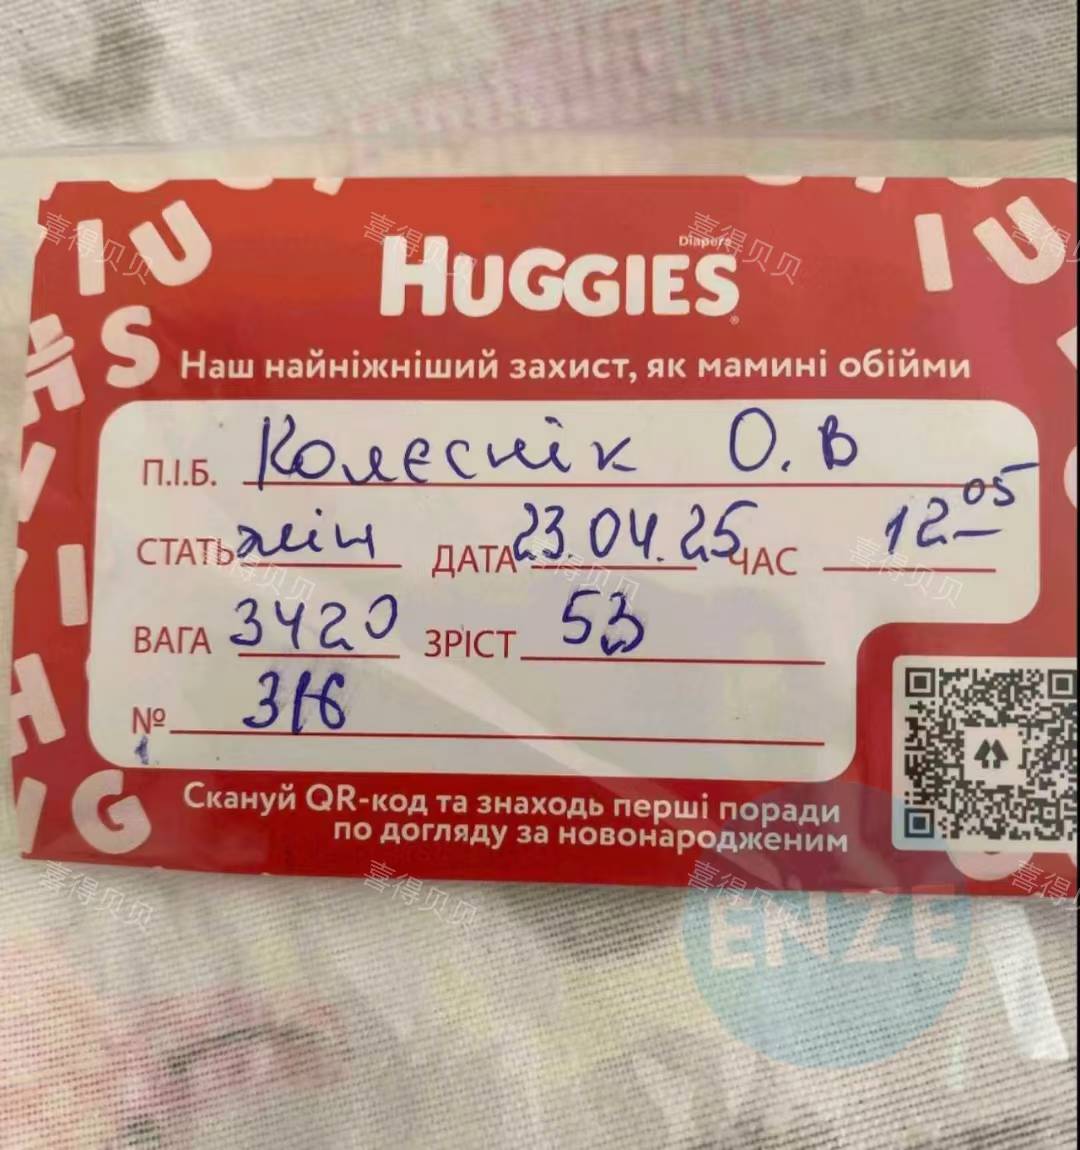 Diapers
HUGGIES
Наш найніжніший захист, як мамині обійми
П.І.Б. Колєснік О.В
СТАТЬ жін ДАТА 23.04.25 ЧАС 12 05
ВАГА 3420 ЗРІСТ 53
№ 316
1
Скануй QR-код та знаходь перші поради
по догляду за новонародженим
ENZE
喜得贝贝